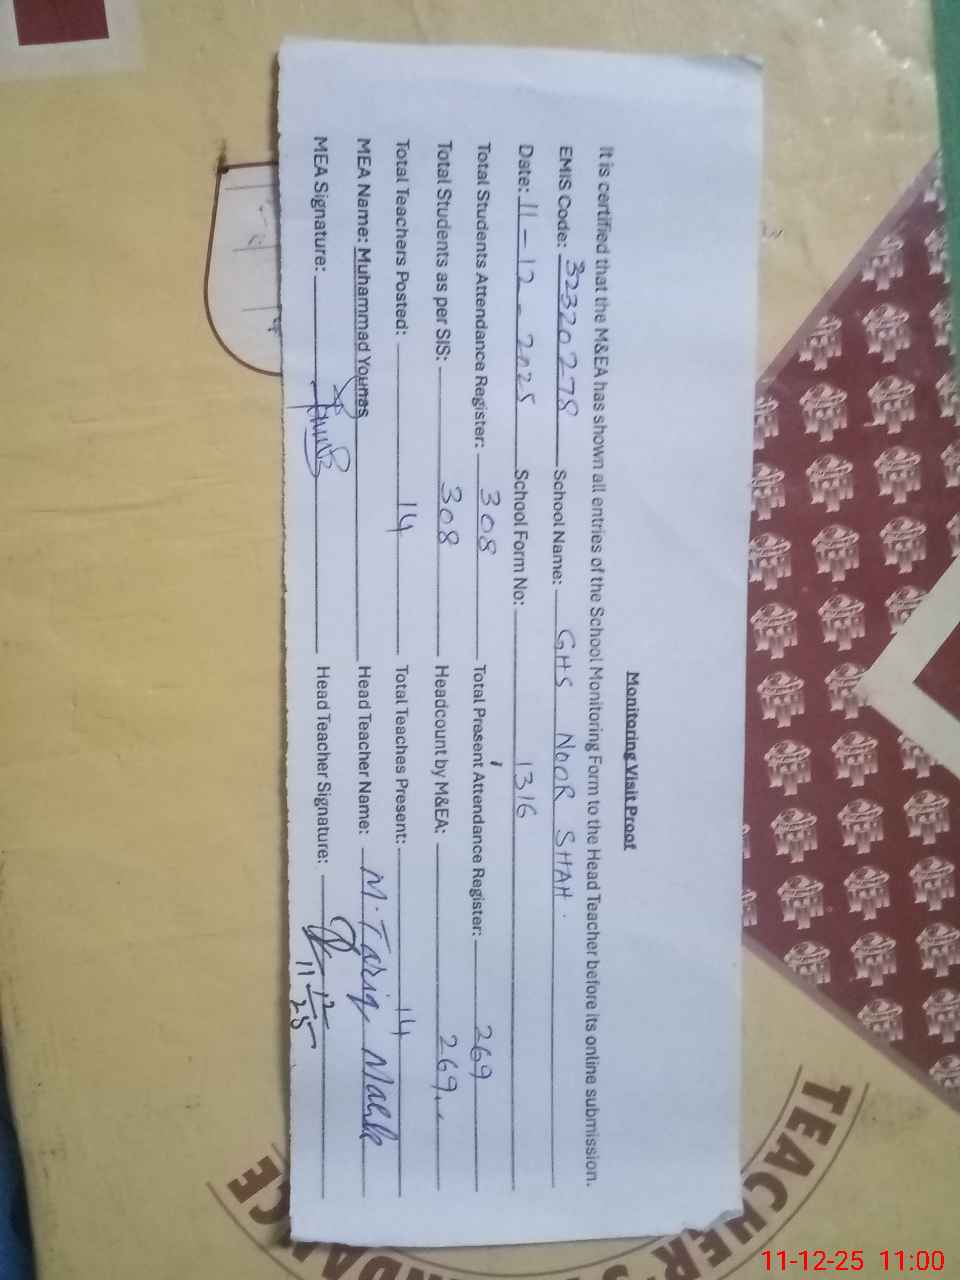 Monitoring Visit Proof
It is certified that the M&EA has shown all entries of the School Monitoring Form to the Head Teacher before its online submission.
EMIS Code: 32320278 School Name: GHS NOOR SHAH.
Date: 11-12-2025 School Form No: 1316
Total Students Attendance Register: 308 Total Present Attendance Register: 269
Total Students as per SIS: 308 Headcount by M&EA: 269
Total Teachers Posted: 14 Total Teaches Present: 14
MEA Name: Muhammad Younas Head Teacher Name: M. Tariq Malik
MEA Signature: Head Teacher Signature:
11-12-25
TEACHER'S
11-12-25 11:00